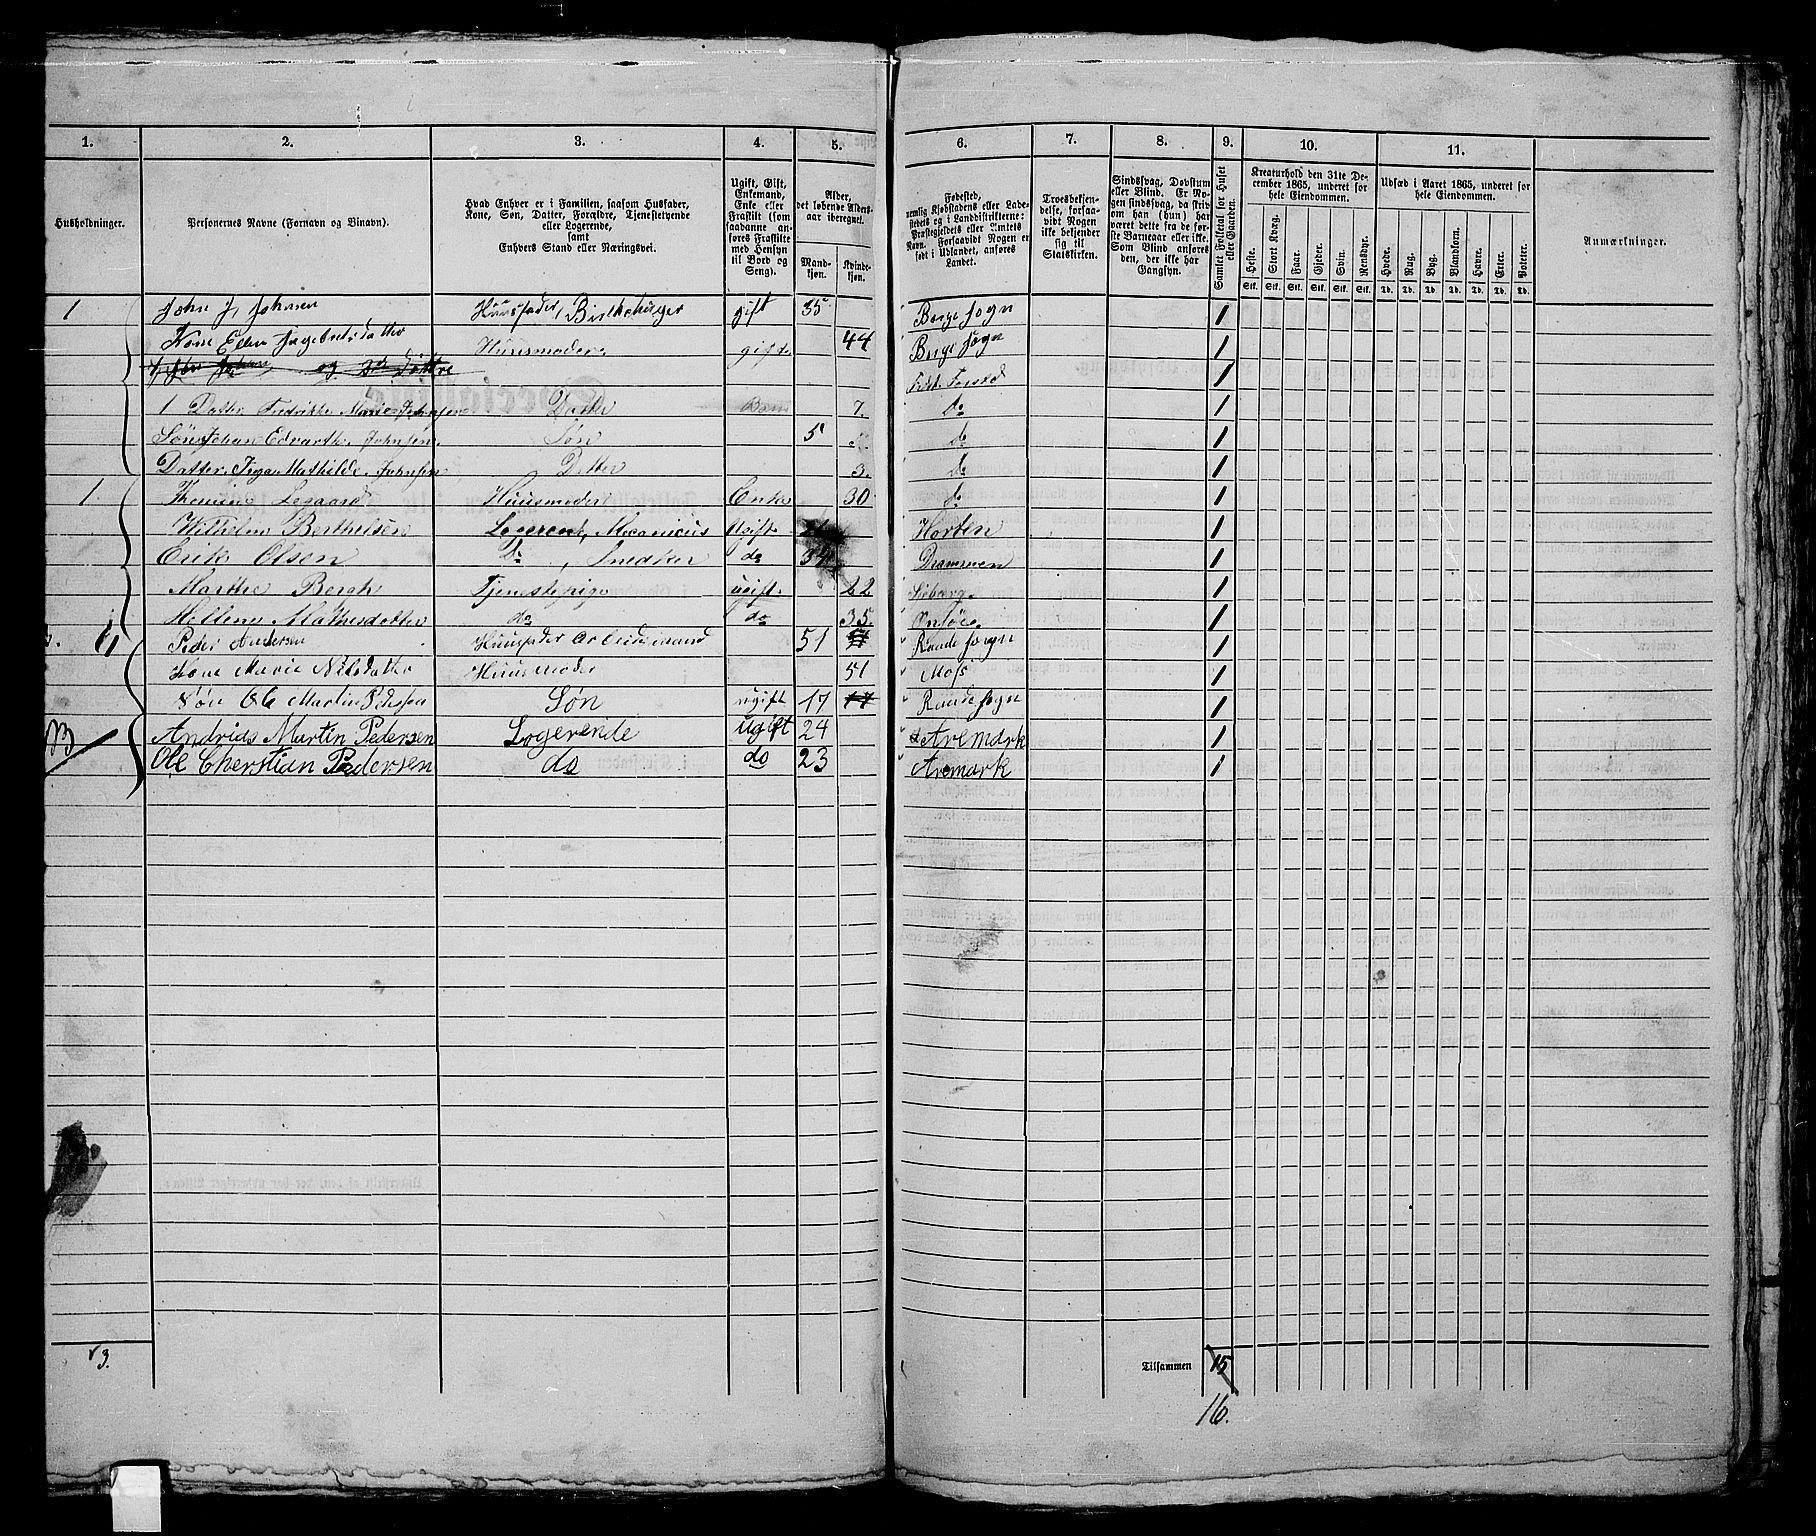 1. 2. 3. 4. 5. 6. 7. 8. 9. 10. 11.
Husholdninger.
Personernes Navne (Fornavn og Binavn).
Hvad Enhver er i Familien, saasom Husfader,
Kone, Søn, Datter, Forældre, Tjenestetyende
eller Logerende,
samt
Enhvers Stand eller Næringsvei.
Ugift, Gift,
Enkemand,
Enke eller
Fraskilt (som
saadanne an-
føres Fraskilte
med Hensyn
til Bord og
Seng).
Alder,
det løbende Alders-
aar iberegnet.
Mand-
kjøn.
Kvinde-
kjøn.
Fødested,
nemlig Kjøbstadens eller Lade-
stedets og i Landdistrikterne:
Præstegjeldets eller Amtets
Navn. Forsaavidt Nogen er
født i Udlandet, anføres
Landet.
Troesbekjen-
delse, forsaa-
vidt Nogen
ikke bekjender
sig til
Statskirken.
Sindssvag, Døvstum
eller Blind. Er No-
gen sindssvag, da skriv
om han (hun) har
været dette fra de før-
ste Barneaar eller ikke.
Som Blind anføres
den, der ikke har
Gangsyn.
Samlet Folketal for Huset
eller Gaarden.
Kreaturhold den 31te De-
cember 1865, underet for
hele Eiendommen.
Heste. Stort Kvæg. Faar. Gjeder. Svin. Rensdyr.
Stk. Stk. Stk. Stk. Stk. Stk.
Udsæd i Aaret 1865, underet for
hele Eiendommen.
Hvede. Rug. Byg. Blandkorn. Havre. Erter. Poteter.
Td. Td. Td. Td. Td. Td. Td.
Anmærkninger.
1 John J. Johnsen Huusfader, gift 35 Borge Sogn 1
Kone Ellen Huusmoder gift 44 Borge Sogn 1
og Døttre 1
1 Datter Fredrikke Marie Johnsen Datter Barn 7. do 1
Søn Johan Edvarth Johnsen Søn 5 do 1
Datter Inga Mathilde Johnsen Datter 3. do 1
1. Huusmoder Enke 30 do 1
Wilhelm Berthelsen Logerend, Mecanicus Ugift Horten 1
Erik Olsen Do, Snedker do 34 Drammen 1
Marthe Bergh Tjenestepige ugift 22 1
Hellene Mathesdatter do do 35. Onsøe 1
Peder Andersen Huusfader Arbeidsmand 51 Raade Sogn 1
Kone Marie Nilsdatter Huusmoder 51 Moss 1
Søn Ole Martin Pedersen Søn ugift 17 17 Raade Sogn 1
Andrias Martin Pedersen Logerende ugift 24 Aremark 1
Ole Cherstian Pedersen do do 23 Aremark 1
3.
Tilsammen 15
16.